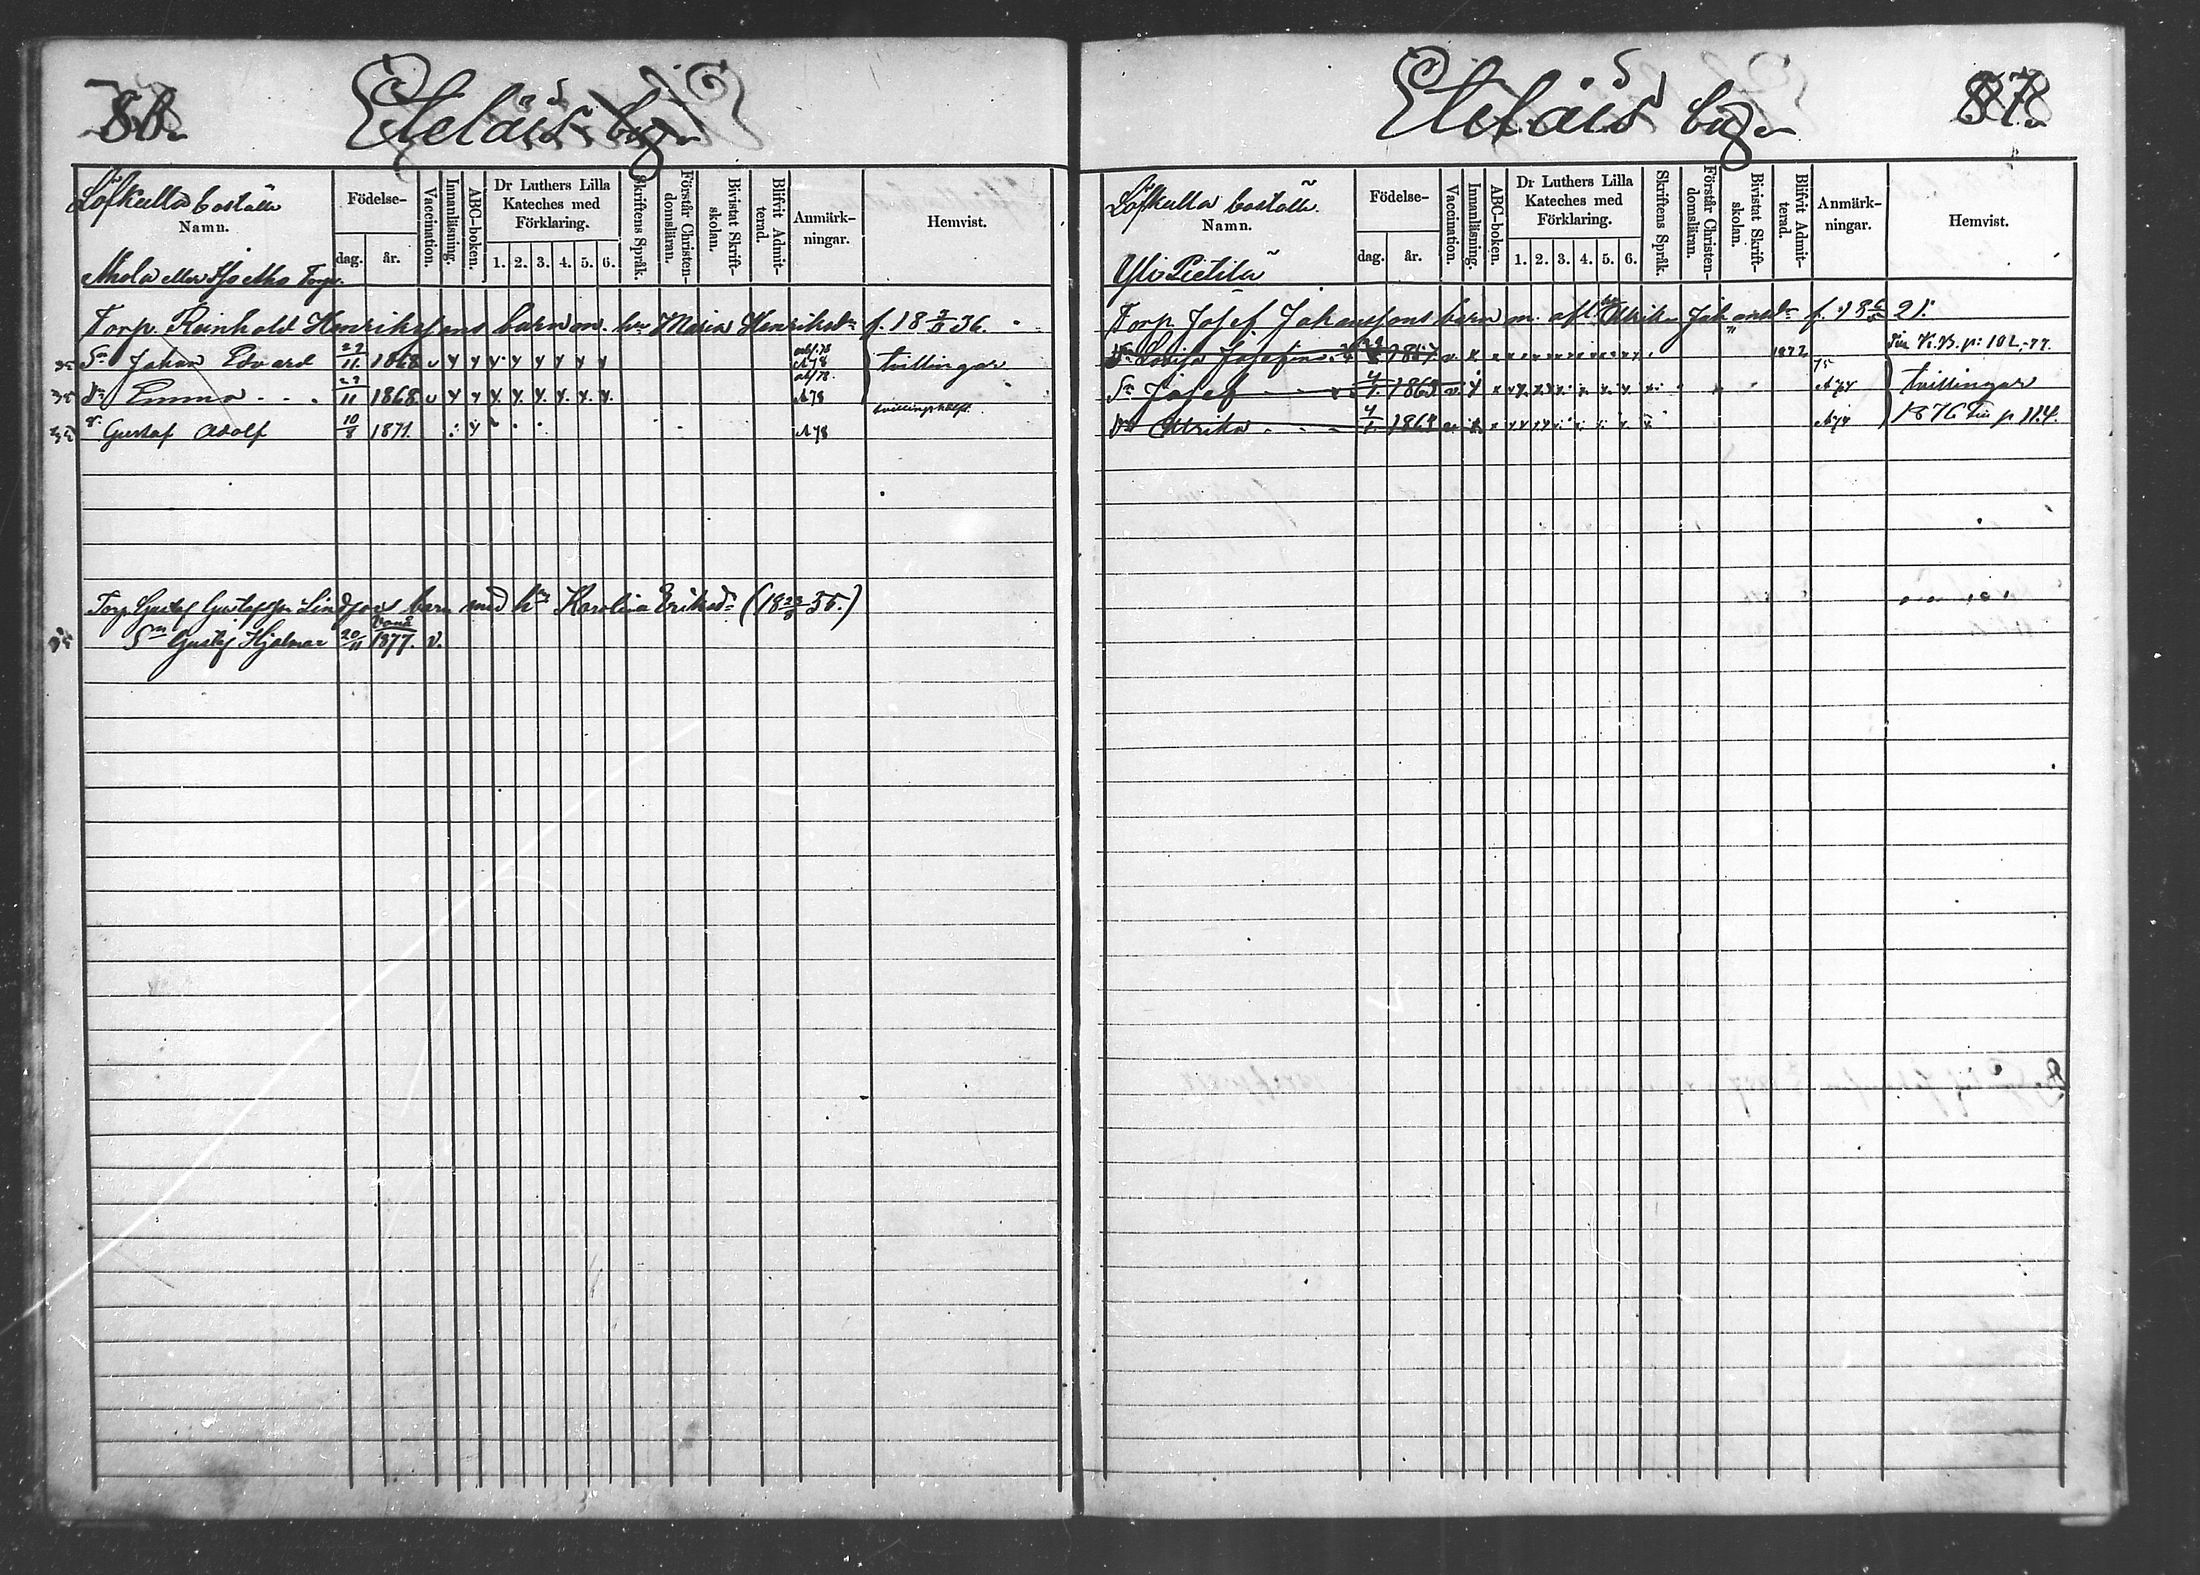 Eteläis by
Löfkulla boställe
Namn.
Födelse-
dag.
år.
Vaccination.
Innanläsning.
ABC-boken.
Dr Luthers Lilla
Kateches med
Förklaring.
1. 2. 3. 4. 5. 6.
Skriftens Språk.
Förstår Christen-
domsläran.
Bivistat Skrift-
skolan.
Blifvit Admit-
terad.
Anmärk-
ningar.
Hemvist.
eller Torp.
Torp. Reinhold Henrikssons barn m. hu Maria Henriksdr f. 18 36.
Sn Johan Edvard 27/11 1868 v y y y y y y y y A78 tvillingar
Dr Emma 27/11 1868 v y y y y y y y y A78
Sn Gustaf Adolf 10/8 1871. A78
Torp Gustaf Gustafsson Lindfors barn med hu Karolina Eriksdr (18 23/8 35.)
Sn Gustaf Hjalmar 20/11 1877. v.
Eteläis by
87.
Löfkulla boställe.
Namn.
Födelse-
dag.
år.
Vaccination.
Innanläsning.
ABC-boken.
Dr Luthers Lilla
Kateches med
Förklaring.
1. 2. 3. 4. 5. 6.
Skriftens Språk.
Förstår Christen-
domsläran.
Bivistat Skrift-
skolan.
Blifvit Admit-
terad.
Anmärk-
ningar.
Hemvist.
Yli Pietilä
Torp. Josef Johanssons barn m. afl. hu Ulrika Johansdr f. 18 21.
Dr Lovisa Josefina 1857. 1877 p: 102,-77.
Sn Josef 4/1. 1863 75 A74 tvillingar
Dr Ulrika 4/1. 1863 A74 1876 p 114.